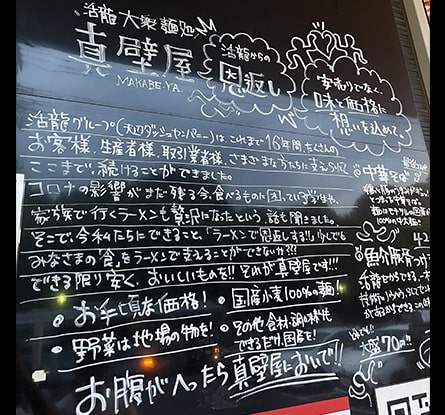 活龍 大衆麺処
真壁屋
MAKABEYA
活龍からの
恩返し
安売りでなく、
味と価格に
想いを込めて。
活龍グループ(天辺ダッシュカンパニー)は、これまで16年間、たくさんの
お客様、生産者様、取引業者様、さまざまな方たちに支えられ
ここまで、続けることができました。
コロナの影響がまだ残る今、食べるものに困っていず
家族で行くラーメンも贅沢になったという話も聞きました。
そこで、今私たちにできること、「ラーメンで恩返しする!!」少しでも
みなさまの食を、ラーメンで支えることができないか???
できる限り安く、おいしいものを!! それが真壁屋です!!!
・お手頃な価格!
・国産小麦100%の麺!
・野菜は地場の物を!
・その他 食材・調味料も
できるだけ、国産を!
お腹がへったら真壁屋においで!!
・中華そば
・魚介豚骨つけ
活龍
大盛70円!!